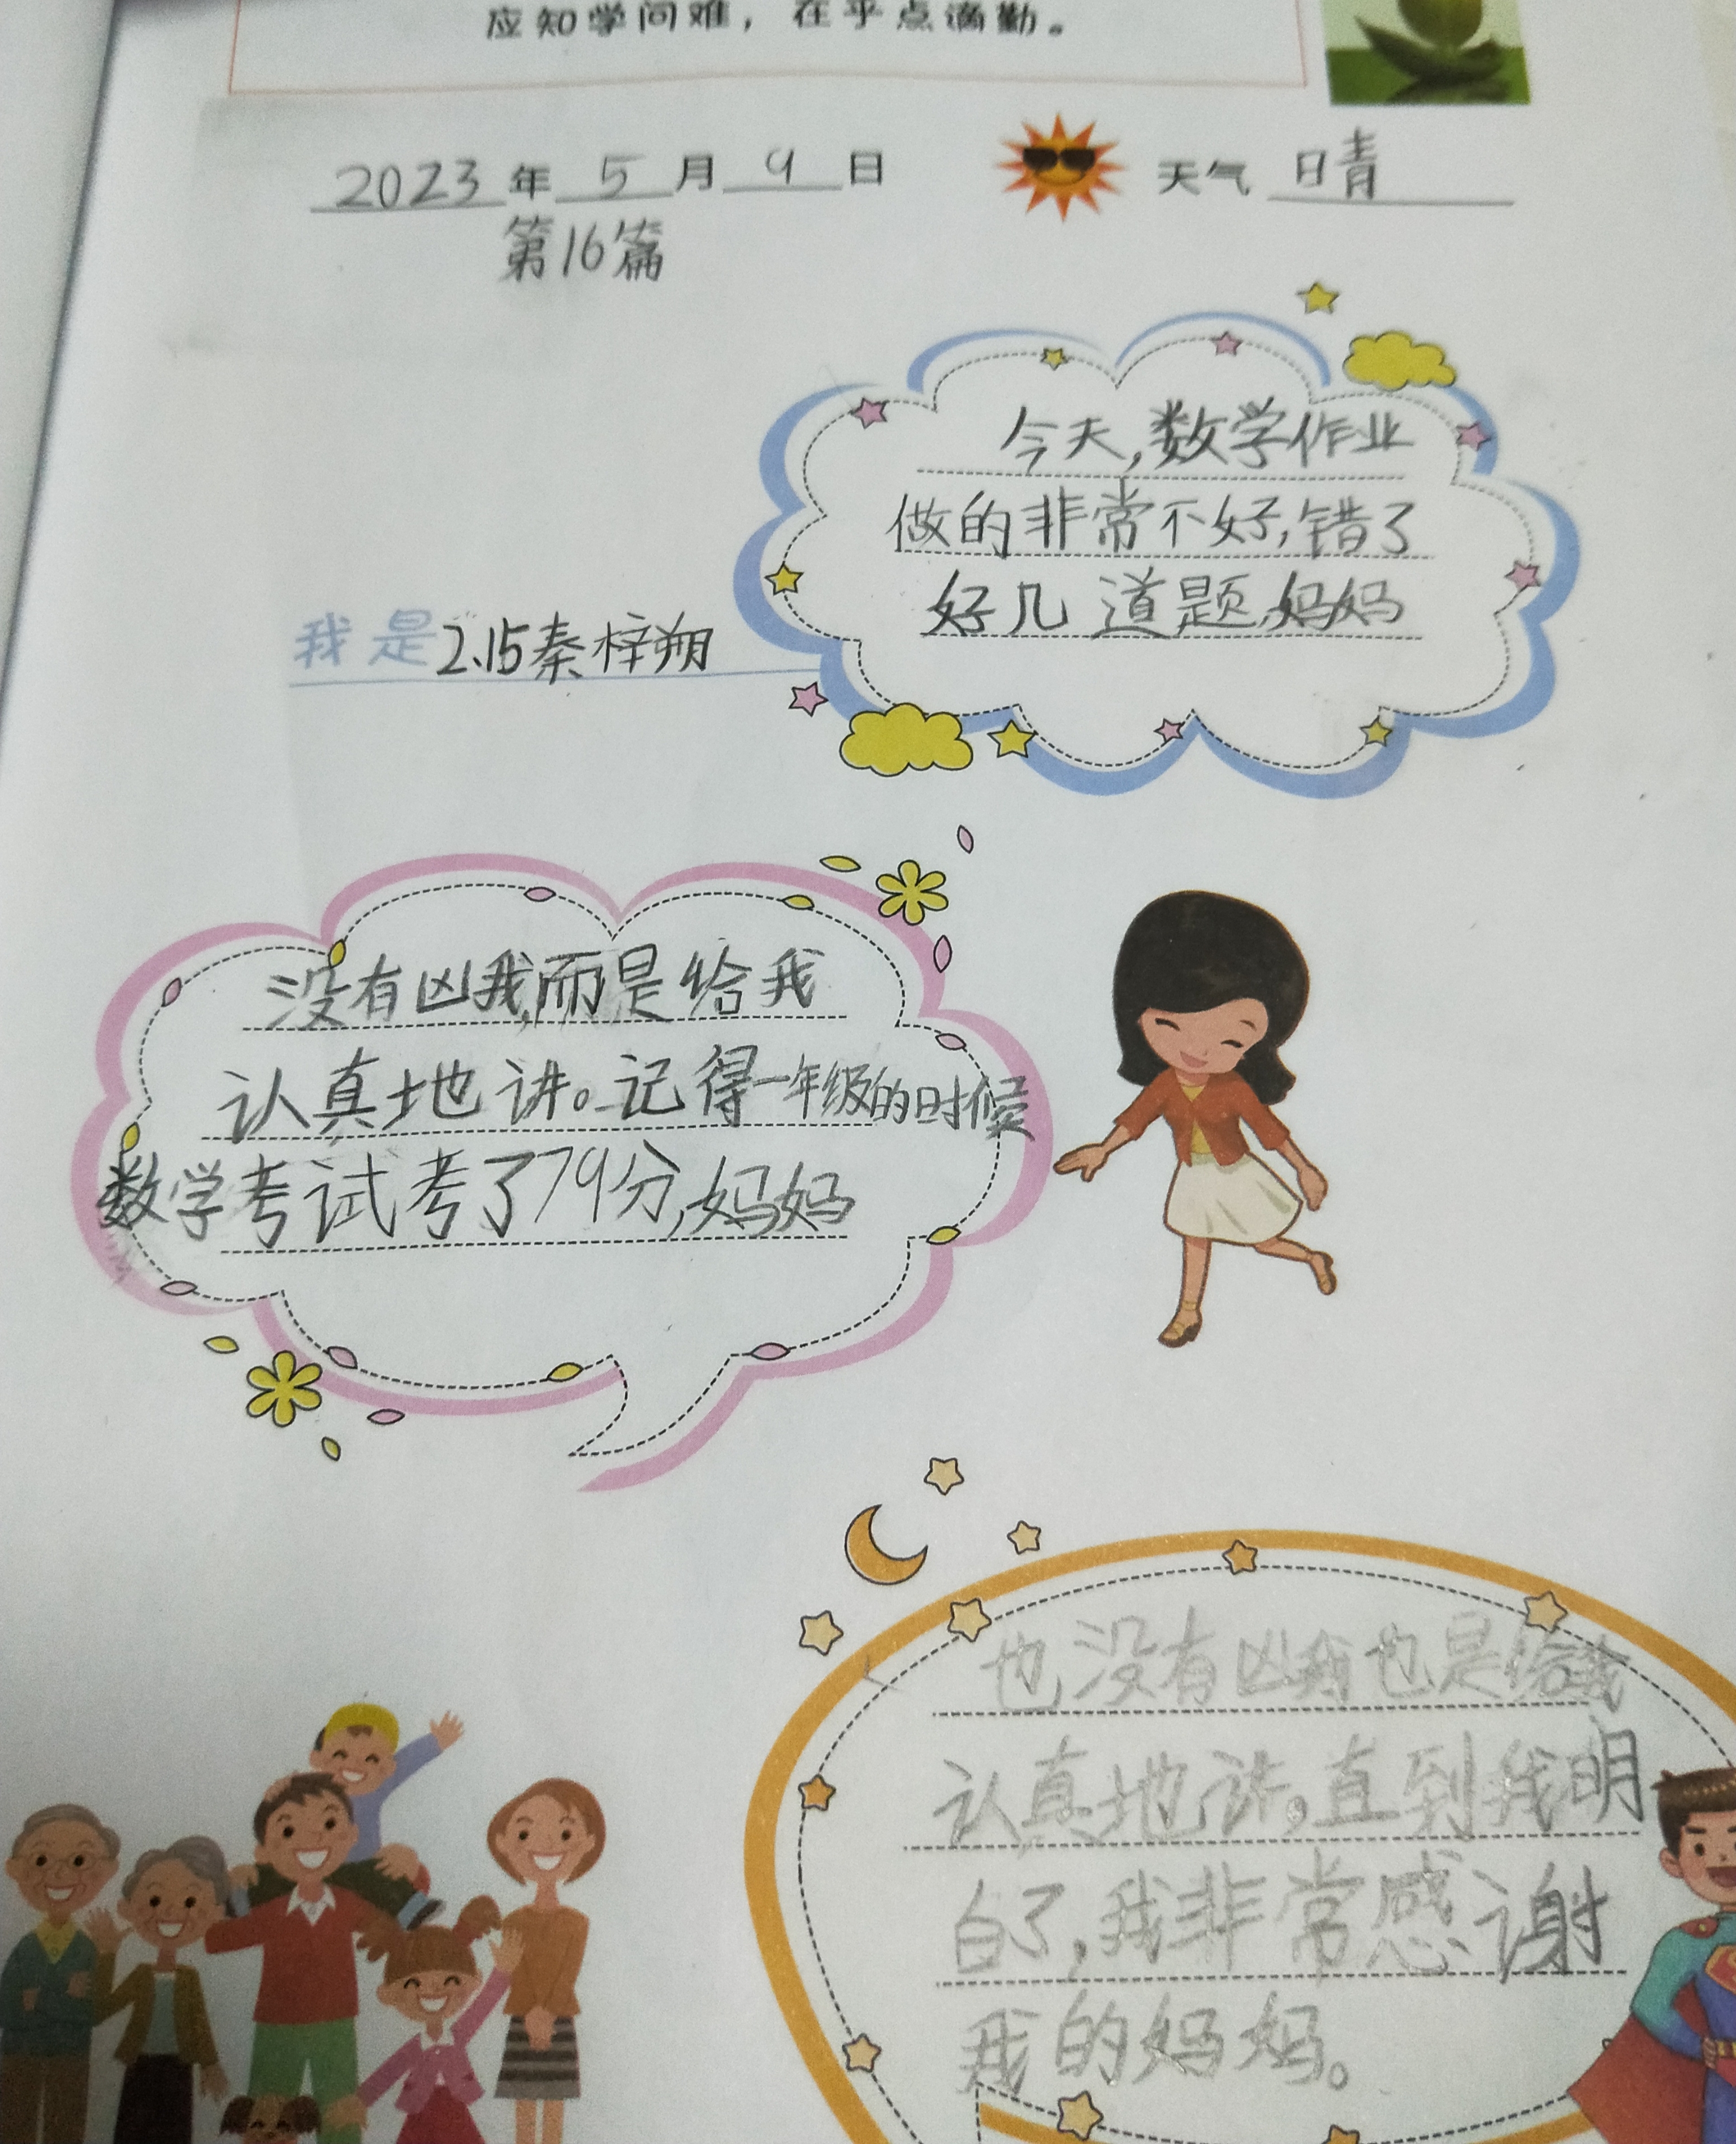 应知学问难，在乎点滴勤。
2023年5月9日 天气 晴
第16篇
今天,数学作业
做的非常不好,错了
好几道题,妈妈
我是2.15秦梓朔
没有凶我,而是给我
认真地讲。记得一年级的时候
数学考试考了79分,妈妈
也没有凶我也是给我
认真地讲,直到我明
白了,我非常感谢
我的妈妈。